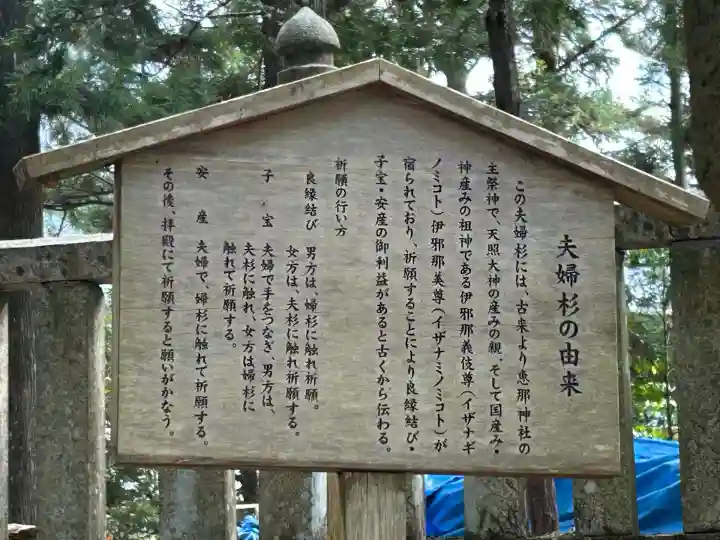 夫婦杉の由来
この夫婦杉には、古来より恵那神社の
主祭神で、天照大神の産みの親、そして国産み・
神産みの祖神である伊邪那義伎尊(イザナギ
ノミコト)伊邪那美尊(イザナミノミコト)が
宿られており、祈願することにより良縁結び・
子宝・安産の御利益があると古くから伝わる。
祈願の行い方
良縁結び 男方は、婦杉に触れ祈願。
女方は、夫杉に触れ祈願する。
子宝 夫婦で手をつなぎ、男方は、
夫杉に触れ、女方は婦杉に
触れて祈願する。
安産 夫婦で、婦杉に触れて祈願する。
その後、拝殿にて祈願すると願いがかなう。